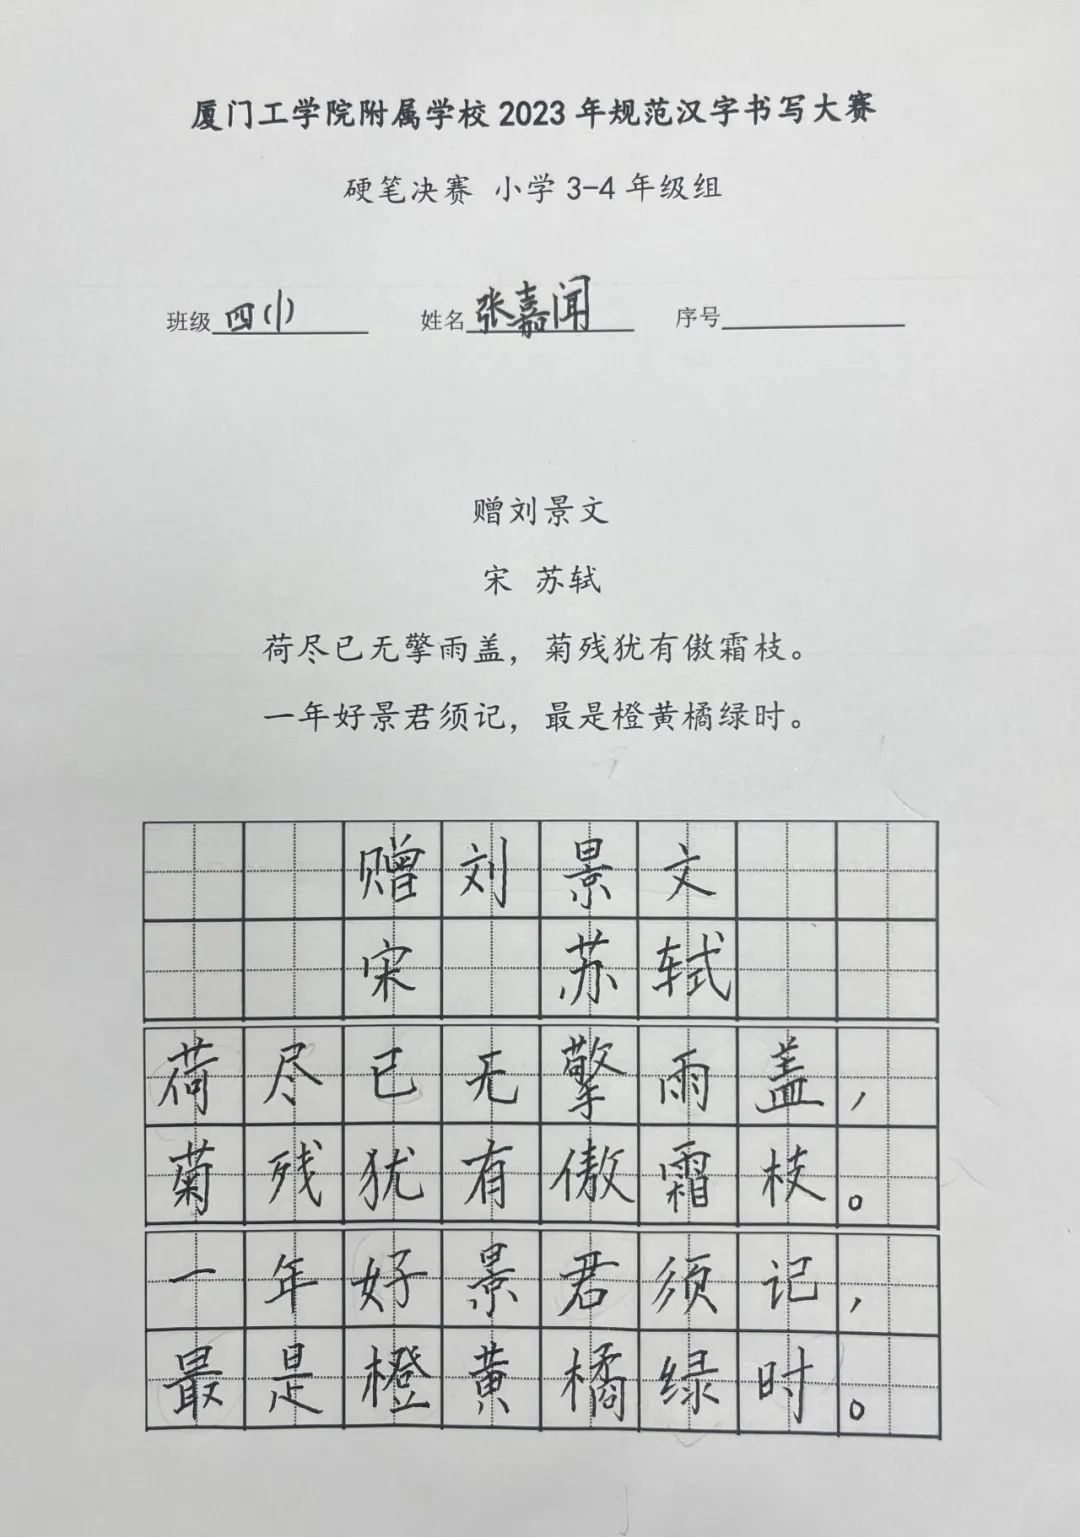 厦门工学院附属学校2023年规范汉字书写大赛
硬笔决赛 小学3-4年级组
班级 四(1) 姓名 张嘉闻 序号
赠刘景文
宋 苏轼
荷尽已无擎雨盖，菊残犹有傲霜枝。
一年好景君须记，最是橙黄橘绿时。
赠刘景文
宋 苏轼
荷尽已无擎雨盖，
菊残犹有傲霜枝。
一年好景君须记，
最是橙黄橘绿时。